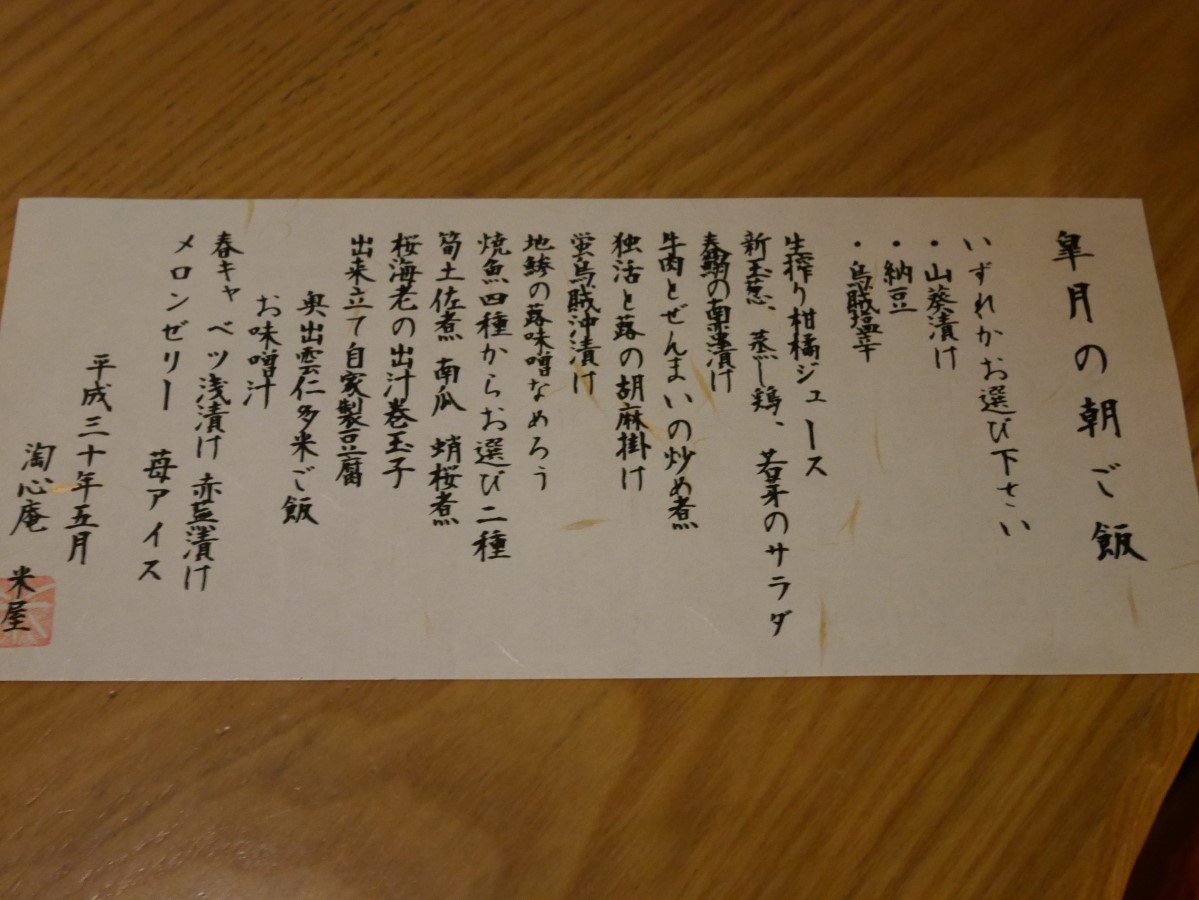 皐月の朝ご飯
いずれかお選び下さい
・山葵漬け
・納豆
・烏賊塩辛
生搾り柑橘ジュース
新玉葱、蒸し鶏、若芽のサラダ
春鯛の南蛮漬け
牛肉とぜんまいの炒め煮
独活と蕗の胡麻掛け
蛍烏賊沖漬け
地鯵の蕗味噌なめろう
焼魚四種からお選び二種
筍土佐煮 南瓜 蛸桜煮
桜海老の出汁巻玉子
出来立て自家製豆腐
奥出雲仁多米ご飯
お味噌汁
春キャベツ浅漬け 赤蕪漬け
メロンゼリー 苺アイス
平成三十年五月
淘心庵 米屋